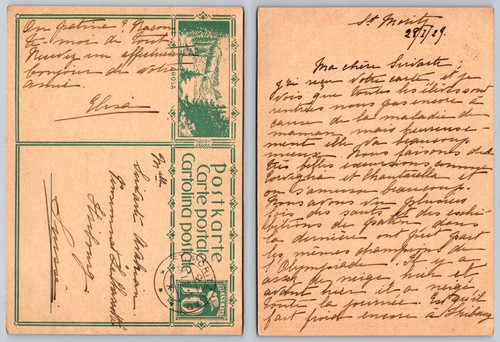 St Moritz
28/I/29.
Ma chère Siriarte;
j'ai reçu votre carte, et je
vois que toutes les élèves sont
rentrées nous pas encore à
cause de la maladie de
maman, mais heureusement
elle va beaucoup
mieux. Nous faisons de
très belles excursions comme
Corviglia et Chantarella et
on s'amuse beaucoup.
Nous avons vu plusieurs
fois des sauts et des exhi-
bitions de patin dans
la dernière ont pris part
les mêmes champions de
l'Olympiade. Il y a
assez de neige hier et
avant hier il a neigé
toute la journée. Est-ce qu'il
fait froid encore à Fribourg
On patine ? Racon-
tez-moi de tout
Recevez un affectueux
bonjour de votre
amie
Elisa
Postkarte
Carte postale
Cartolina postale
10
Mlle
Fribourg
Suisse